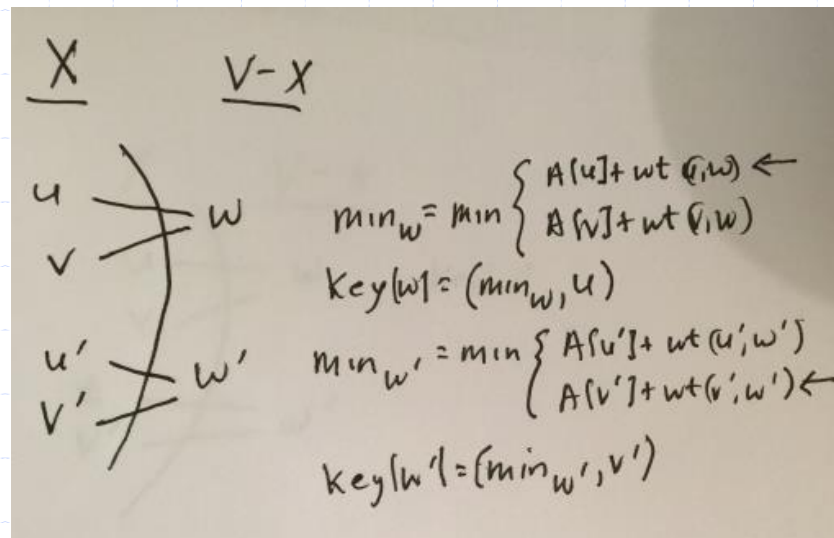 X V-X
u
v
w
min_w = min { A[u] + wt (u,w) ←
A[v] + wt (v,w)
key[w] = (min_w, u)
u'
v'
w'
min_w' = min { A[u'] + wt (u',w')
A[v'] + wt (v',w') ←
key[w'] = (min_w', v')